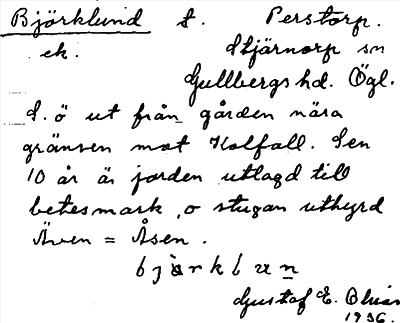 Björklund t. Perstorp.
ek. Stjärnorp sn
Gullbergs hd. Ögl.
S. ö ut från gården nära
gränsen mot Kolfall. Sen
10 år är jorden utlagd till
betesmark, o stugan uthyrd
Även = Åsen.
bjärklun
Gustaf E.
1936.